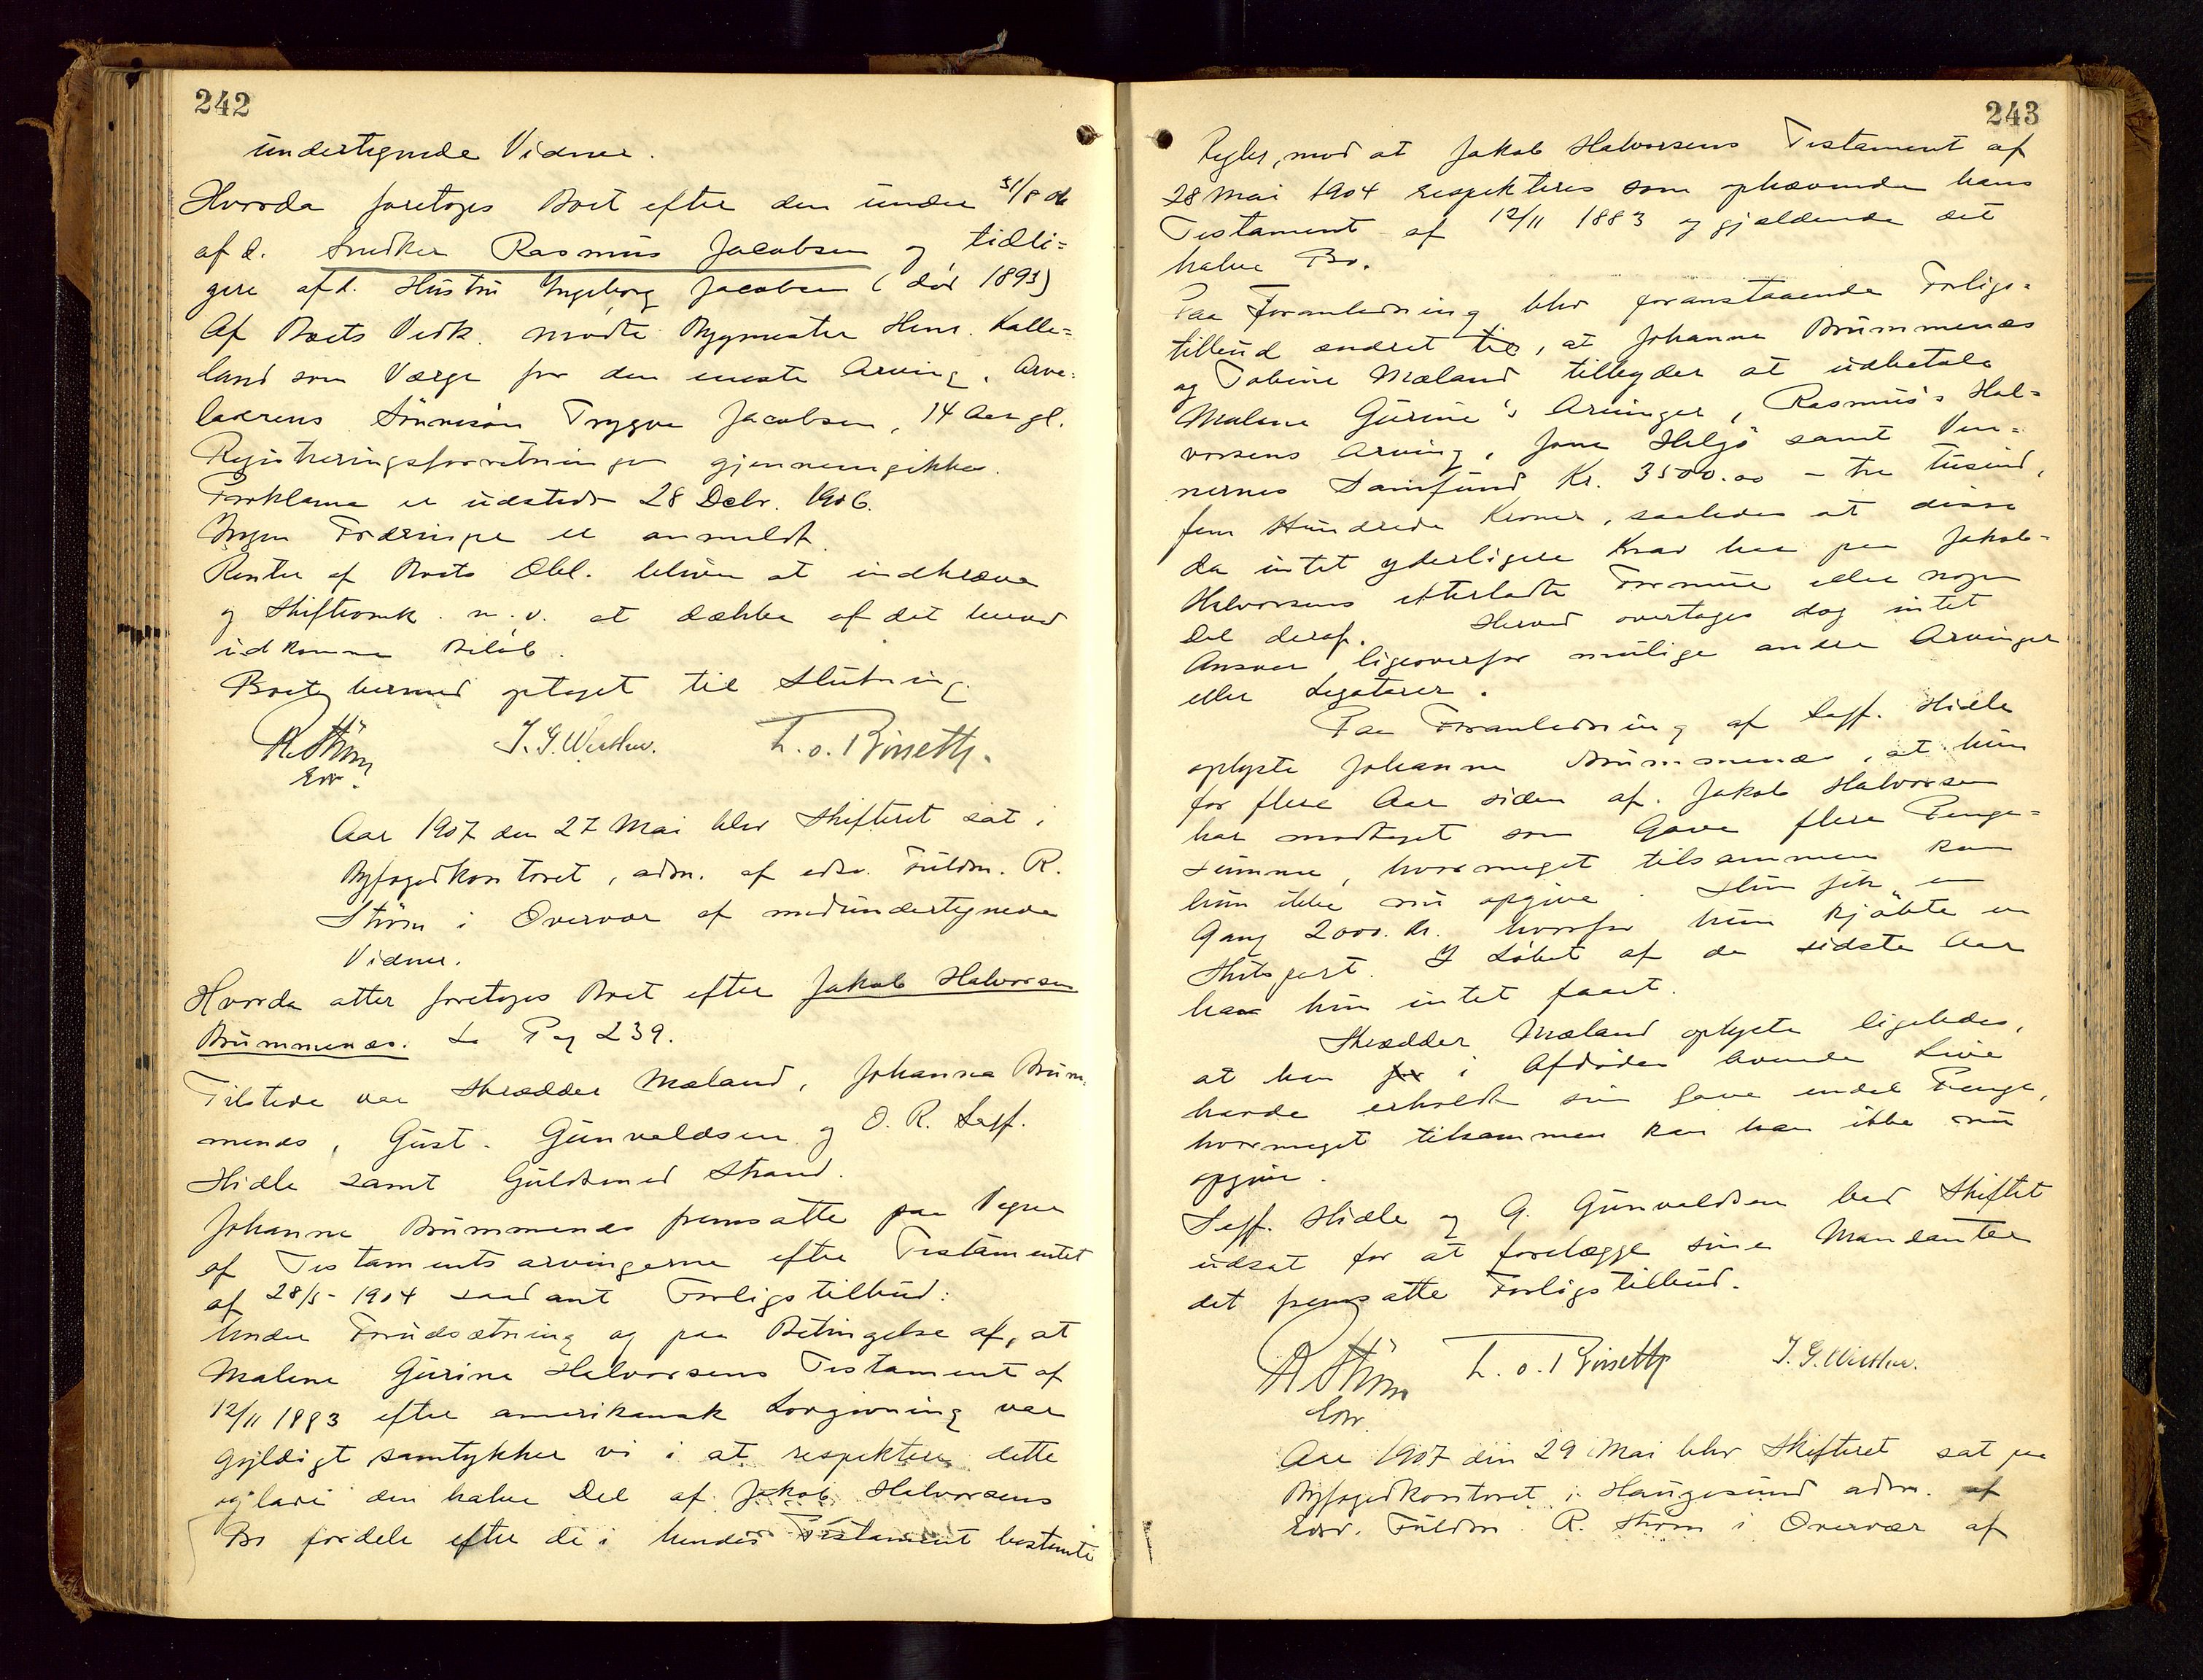 242
undertegnede Vidner.
Hvorda foretoges Boet efter den under 31/8 06
afd. Snedker Rasmus Jacobsen og tidli=
gere afd. Hustru Ingeborg Jacobsen (død 1893)
Af Boets Vedk. mødte Bygmester Henr. Kalle=
land som Værge for den eneste Arving, Arve=
laderens Sønnesøn Trygve Jacobsen, 14 Aar gl.
Registreringsforretningen gjennemgikkes.
Proklama er udstedt 28 Decbr. 1906.
Ingen Fordringer er anmeldt.
Renter af Boets Obl. bliver at indkræve
og Skifteomk. m.v. at dække af det herved
udkomne Beløb.
Boet hermed optaget til Slutning.
R. Strøm
Edsv.
T. o. Risseth.
Aar 1907 den 27 Mai blev Skifteret sat i
Byfogedkontoret, adm. af edsv. Fuldm. R.
Strøm i Overvær af medundertegnede
Vidner.
Hvorda atter foretoges Boet efter Jakob Halvorsen
Brummenæs. Se Pag 239.
Tilstede var Skrædder Mæland, Johanna Brum=
menæs, Gust. Gunvaldsen og O. R. Sagf.
Hidle samt Guldsmed Strand.
Johanne Brummenæs fremsatte paa Vegne
af Testamentsarvingerne efter Testamentet
af 28/5-1904 saadant Forligstilbud:
Under Forudsætning og paa Betingelse af, at
Malene Gurine Halvorsens Testament af
12/11 1883 efter amerikansk Lovgivning var
gyldigt samtykker vi i at respektere dette
og lade den halve Del af Jakob Halvorsens
Bo fordele efter de i hendes Testament bestemte
243
Regler, mod at Jakob Halvorsens Testament af
28 Mai 1904 respekteres som ophævende hans
Testament af 12/11 1883 og gjældende det
halve Bo.
Paa Foranledning blev foranstaaende Forligs=
tilbud ændret til, at Johanne Brummenæs
og Tobine Mæland tilbyder at udbetale
Malene Gurine's Arvinger, Rasmus's Hal=
vorsens Arving, Jone Helgø samt Ven=
nernes Samfund Kr. 3500.00 - tre tusind,
fem Hundrede Kroner, saaledes at disse
da intet yderligere Krav har paa Jakob
Halvorsens efterladte Formue eller nogen
Del deraf. Herved overtages dog intet
Ansvar ligeoverfor mulige andre Arvinger
eller Legatarer.
Paa Foranledning af Sagf. Hidle
oplyste Johanne Brummenæs, at hun
for flere Aar siden af Jakob Halvorsen
har modtaget som Gave flere Penge=
summe, hvormeget tilsammen kan
hun ikke nu opgive. Hun fik en
Gang 2000. Kr. hvorfor hun kjøbte en
Skibspart. I Løbet af de sidste Aar
har hun intet faaet.
Skrædder Mæland oplyste ligeledes,
at han i Afdødes levende Live
havde erholdt som Gave endel Penge,
hvormeget tilsammen kan han ikke nu
opgive.
Sagf. Hidle og G. Gunvaldsen bad Skiftet
udsat for at forelægge sine Mandanter
det fremsatte Forligstilbud.
R Strøm
Edsv.
T. o. Risseth
Aar 1907 den 29 Mai blev Skifteret sat paa
Byfogedkontoret i Haugesund adm. af
Edsv. Fuldm R. Strøm i Overvær af